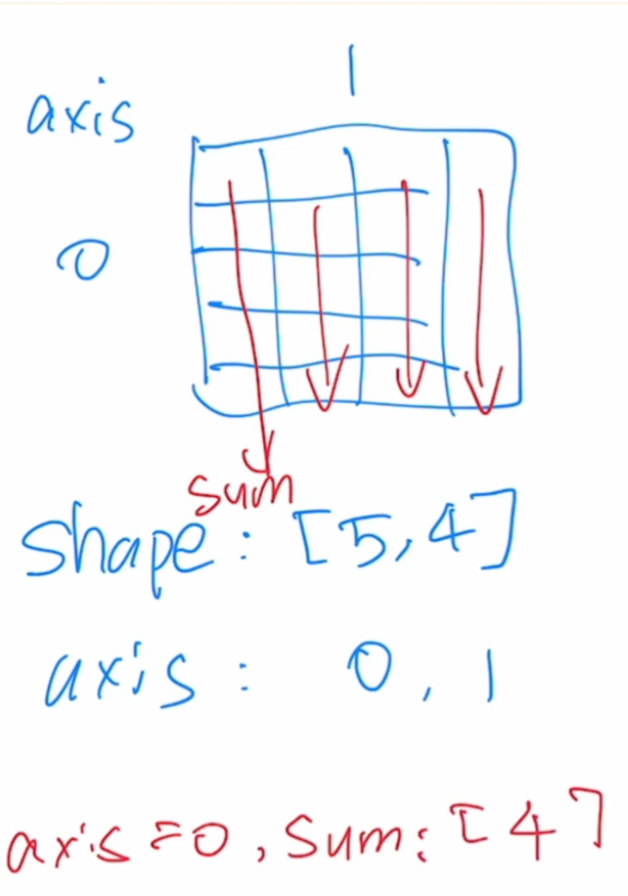 1
axis
0
sum
shape: [5,4]
axis: 0, 1
axis=0, Sum: [4]